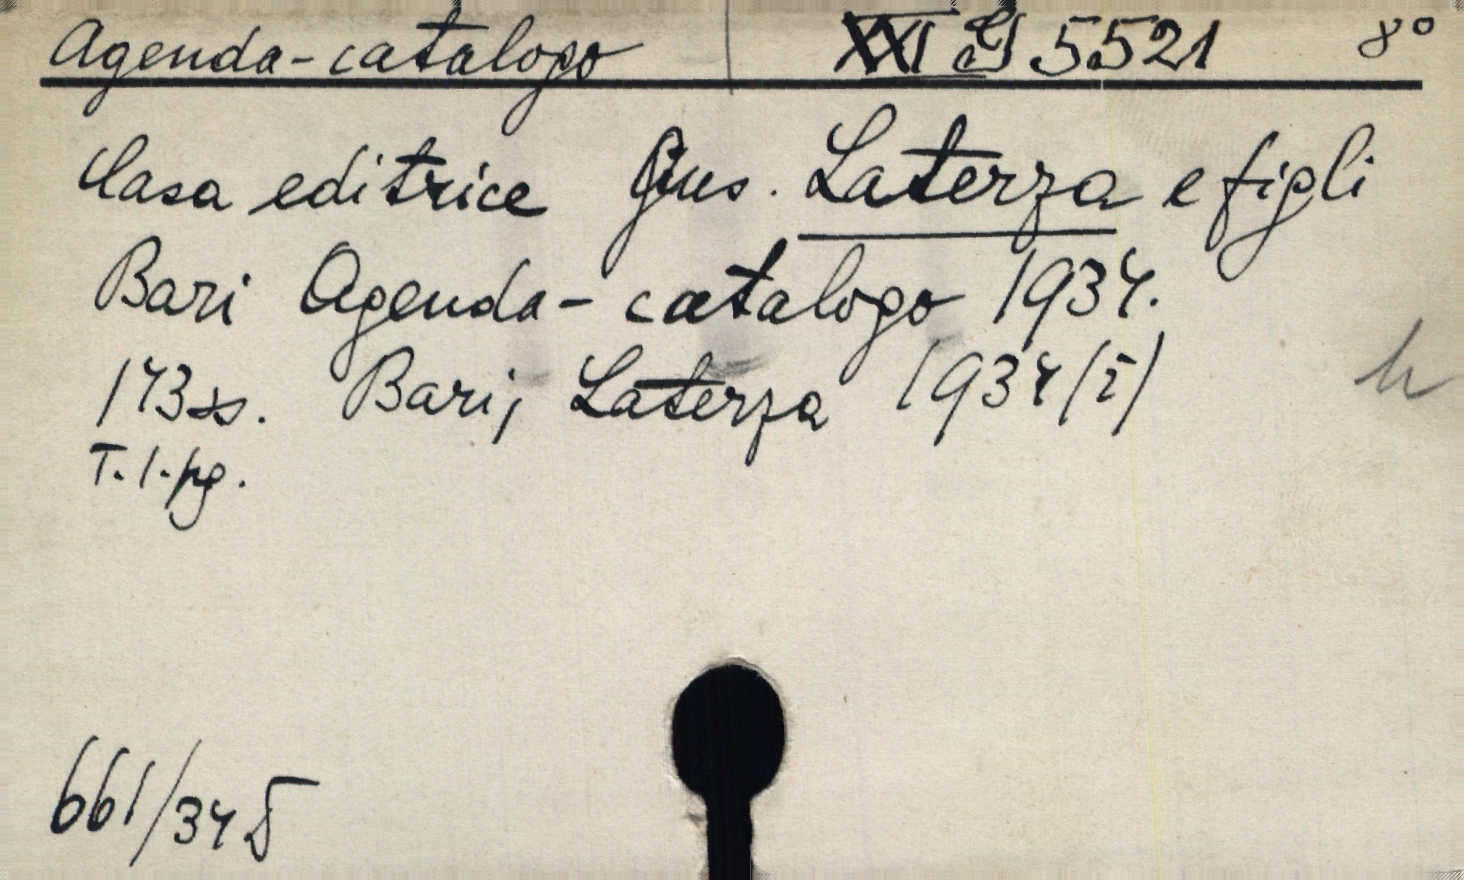 Agenda-catalogo XXI G 5521 8°
Casa editrice Gius. Laterza e figli
Bari Agenda-catalogo 1934.
173 ss. Bari, Laterza 1934/I/
h
T. 1. pg.
661/34